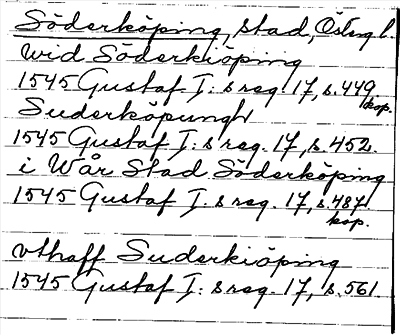 Söderköping, stad, Östergl.
wid Söderkiöping
1545 Gustaf I: s reg. 17, s. 449
kop.
Suderköpungh
1545 Gustaf I: s reg. 17, s. 452.
i Wår Stad Söderköping
1545 Gustaf I. s reg. 17, s. 487.
kop.
vthaff Suderkiöping
1545 Gustaf I: s reg. 17, s. 561